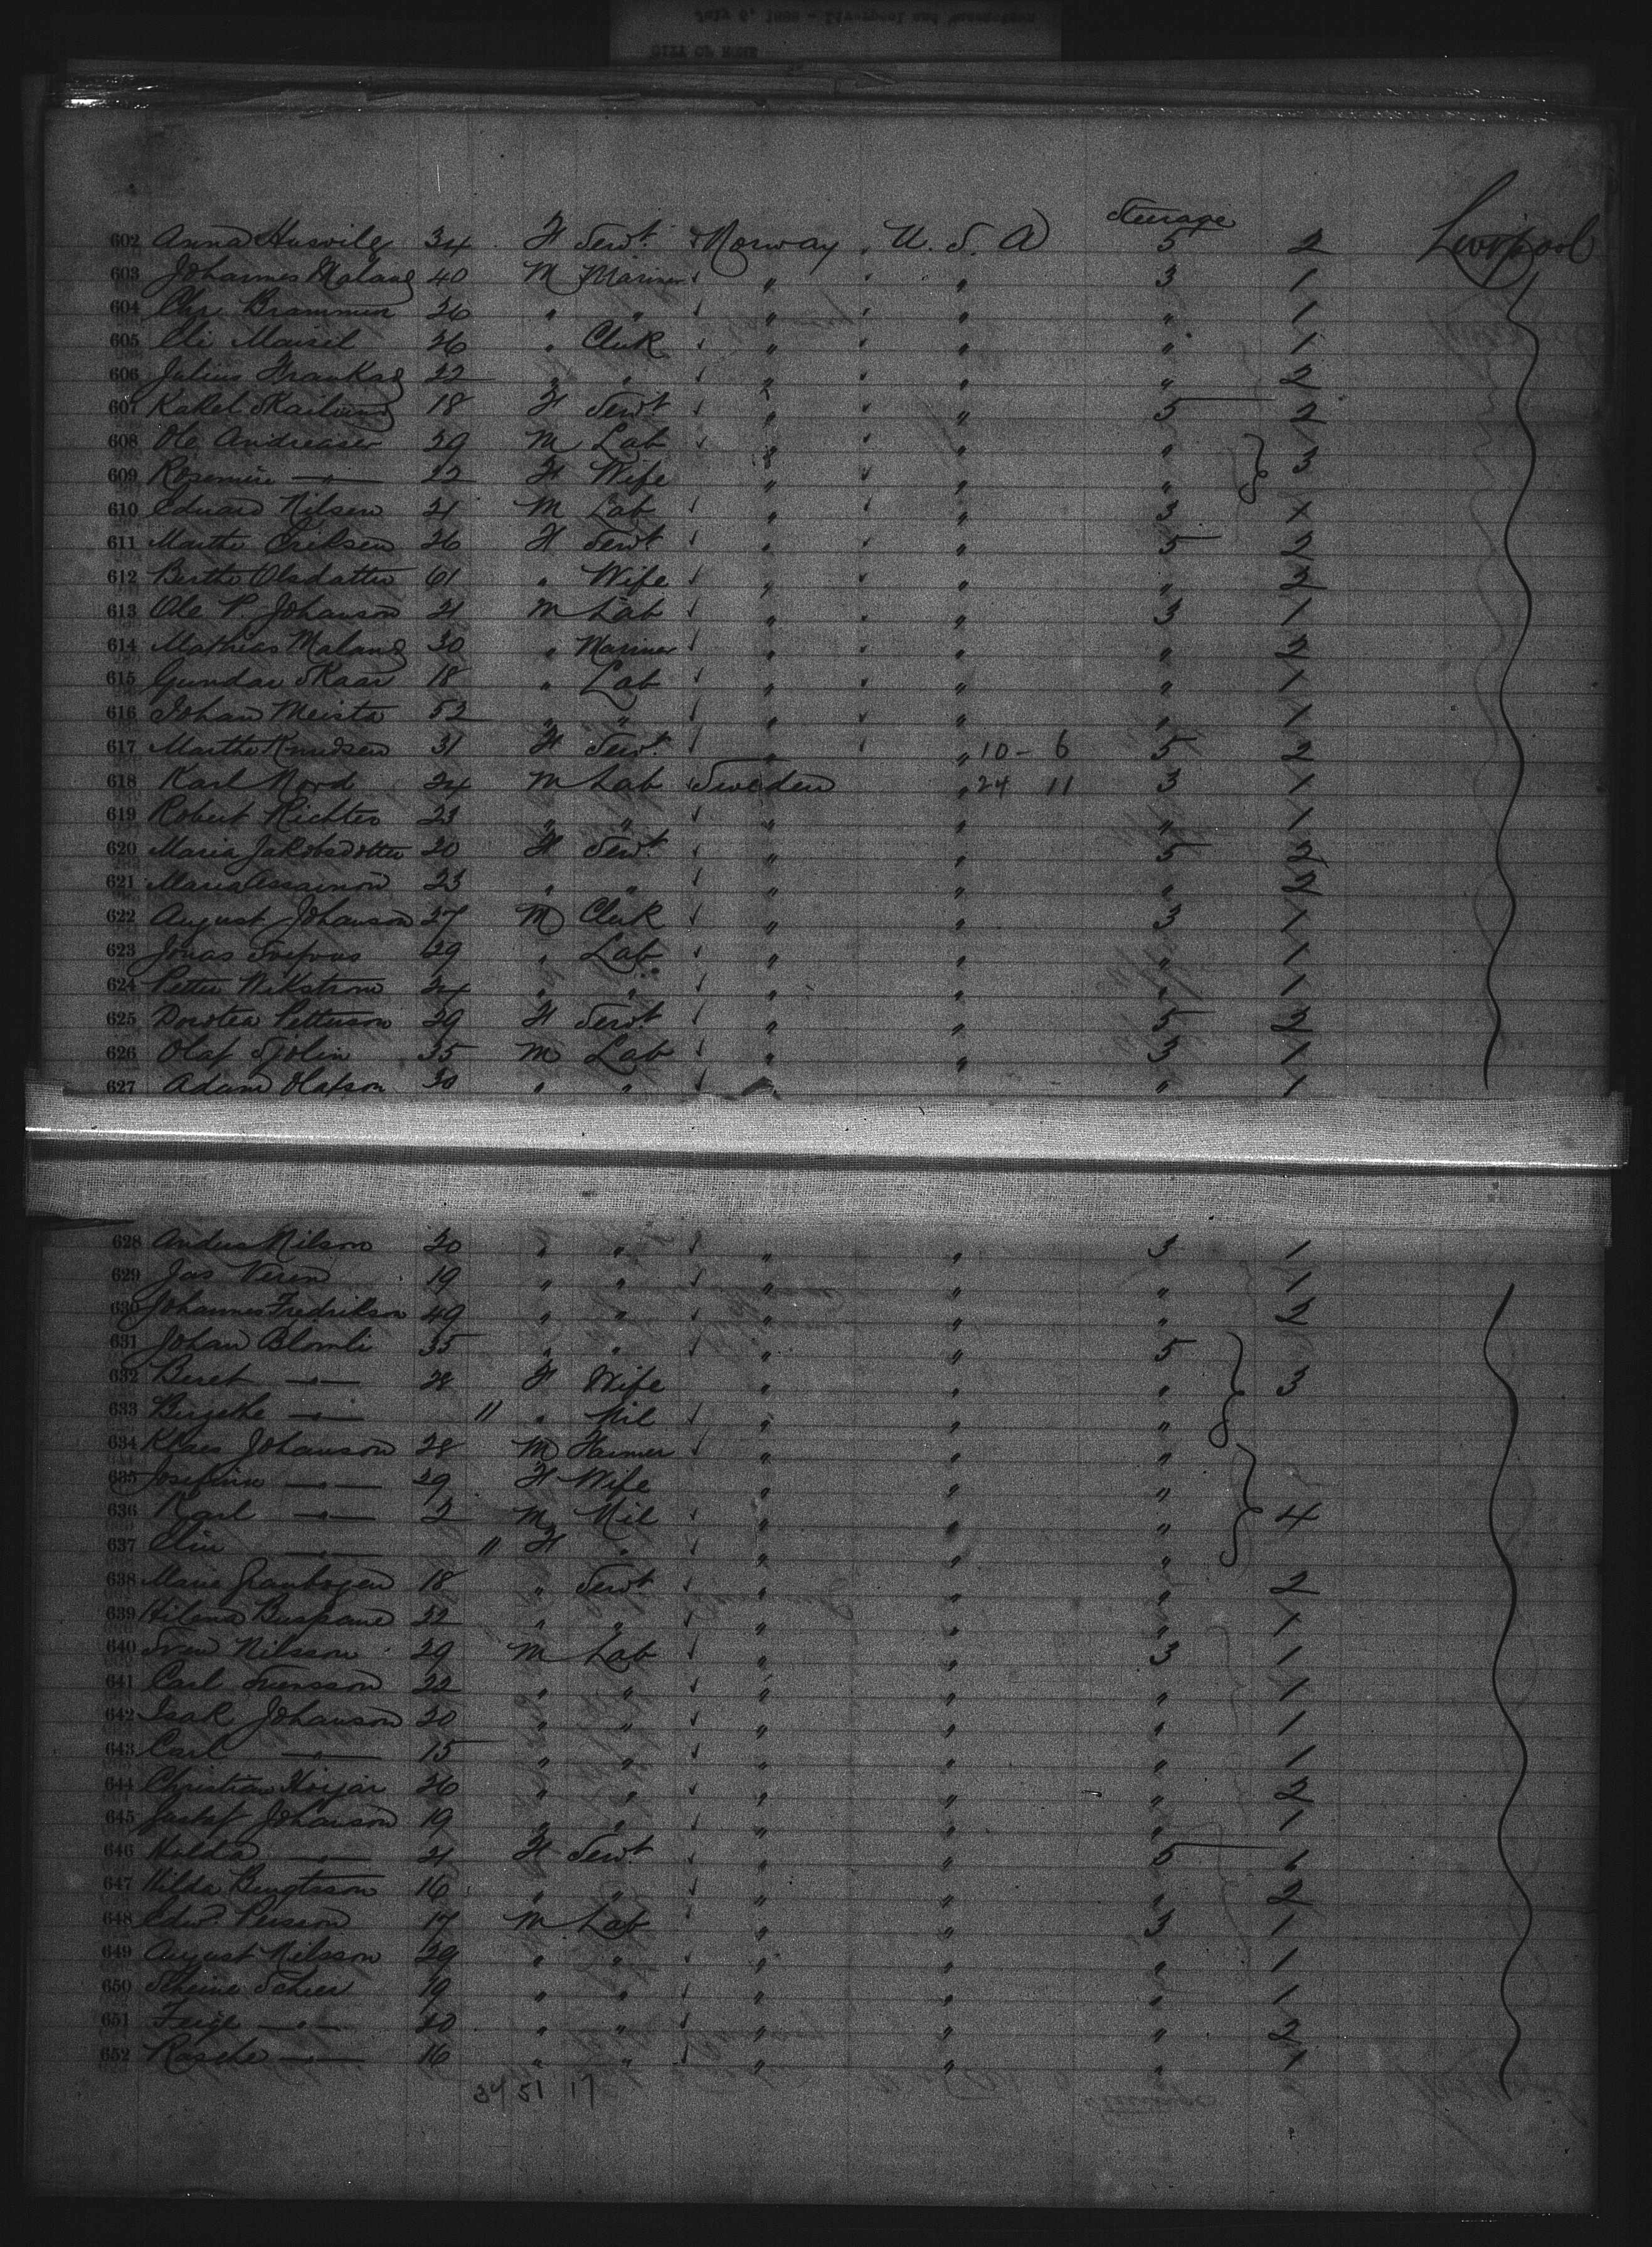 Steerage
602 Anna Husvilg 34 F Servt. Norway U. S. A 5 2 Liverpool
603 Johannes Maland 40 M Mariner " " 3 1
604 Chr. Brammen 26 " " " " " 1
605 Eli Maisel 26 " Clerk " " " 1
606 Julius 22 " " " " " 2
607 Rakel 18 F Servt " " 5 2
608 Ole Andreasen 29 M Lab " " " 3
609 Rosemine — " — 22 F Wife " " "
610 Eduard Nilsen 21 M Lab " " 3 1
611 Marthe Eriksen 26 F Servt " " 5 2
612 Berthe Olsdatter 61 " Wife " " " 2
613 Ole P. Johanson 21 M Lab " " 3 1
614 Mathias Maland 30 " Mariner " " " 2
615 Gundar Skaar 18 " Lab " " " 1
616 Johan Meista 52 " " " " " 1
617 Marthe Knudsen 31 F Servt. " " 10 - 6 5 2
618 Karl Nord 24 M Lab Sweden " 24 11 3 1
619 Robert Richter 23 " " " " " 1
620 Maria Jakobsdotter 20 F Servt. " " 5 2
621 Maria 23 " " " " " 2
622 August Johanson 27 M Clerk " " 3 1
623 Jonas 29 " Lab " " " 1
624 Petter Wikstrom 24 " " " " " 1
625 Dorotea Petterson 29 F Servt " " 5 2
626 Olaf Sjolin 35 M Lab " " 3 1
627 Adam Olafson 30 " " " 1
628 Anders Nilson 20 " " " " 3 1
629 Jas Veren 19 " " " " " 1
630 Johannes Fredrikson 49 " " " " " 2
631 Johan Blomli 35 " " " " 5
632 Beret — " — 28 F Wife " " " 3
633 Birgethe — " — 11 " Nil " " "
634 Klaes Johanson 28 M Farmer " " "
635 Josefina — " — 29 F Wife " " "
636 Karl — " — 2 M Nil " " " 4
637 Elin — " — 11 F " " " "
638 Marie 18 " Servt " " " 2
639 Hilena 22 " " " " " 1
640 Sven Nilsson 29 M Lab " " 3 1
641 Carl Svensson 22 " " " " " 1
642 Isak Johanson 20 " " " " " 1
643 Carl — " — 15 " " " " " 1
644 Christian 26 " " " " " 2
645 Gustaf Johanson 19 " " " " " 1
646 Hulda — " — 21 F Servt " " 5 1
647 Hilda Bengtsson 16 " " " " " 2
648 Edwd. Person 17 M Lab " " 3 1
649 August Nilsson 29 " " " " " 1
650 Scheine Scheer 19 " " " " " 1
651 Feige — " — 20 " " " " " 2
652 Rasche — " — 16 " " " " " 1
34 51 17